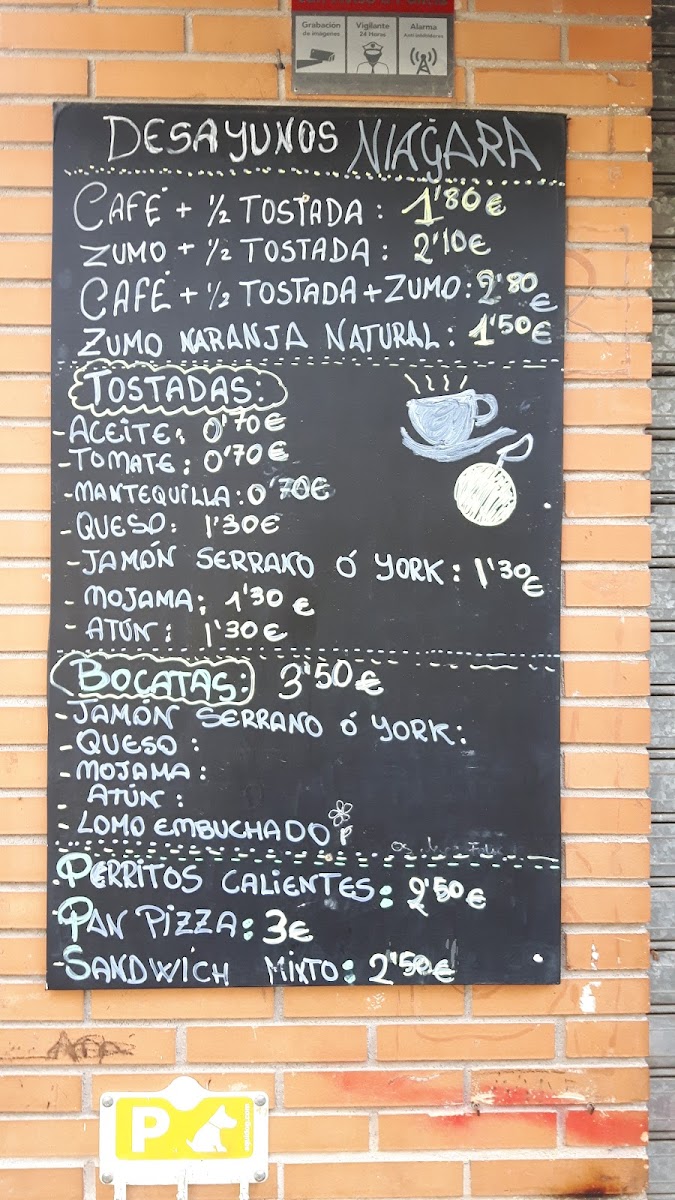 Grabación de imágenes
Vigilante 24 Horas
Alarma
DESAYUNOS NIAGARA
CAFÉ + ½ TOSTADA: 1'80€
ZUMO + ½ TOSTADA: 2'10€
CAFÉ + ½ TOSTADA + ZUMO: 2'80€
ZUMO NARANJA NATURAL: 1'50€
TOSTADAS:
- ACEITE: 0'70€
- TOMATE: 0'70€
- MANTEQUILLA: 0'70€
- QUESO: 1'30€
- JAMÓN SERRANO Ó YORK: 1'30€
- MOJAMA: 1'30€
- ATÚN: 1'30€
BOCATAS: 3'50€
- JAMÓN SERRANO Ó YORK:
- QUESO:
- MOJAMA:
- ATÚN:
- LOMO EMBUCHADO
PERRITOS CALIENTES: 2'50€
PAN PIZZA: 3€
- SANDWICH MIXTO: 2'50€
P